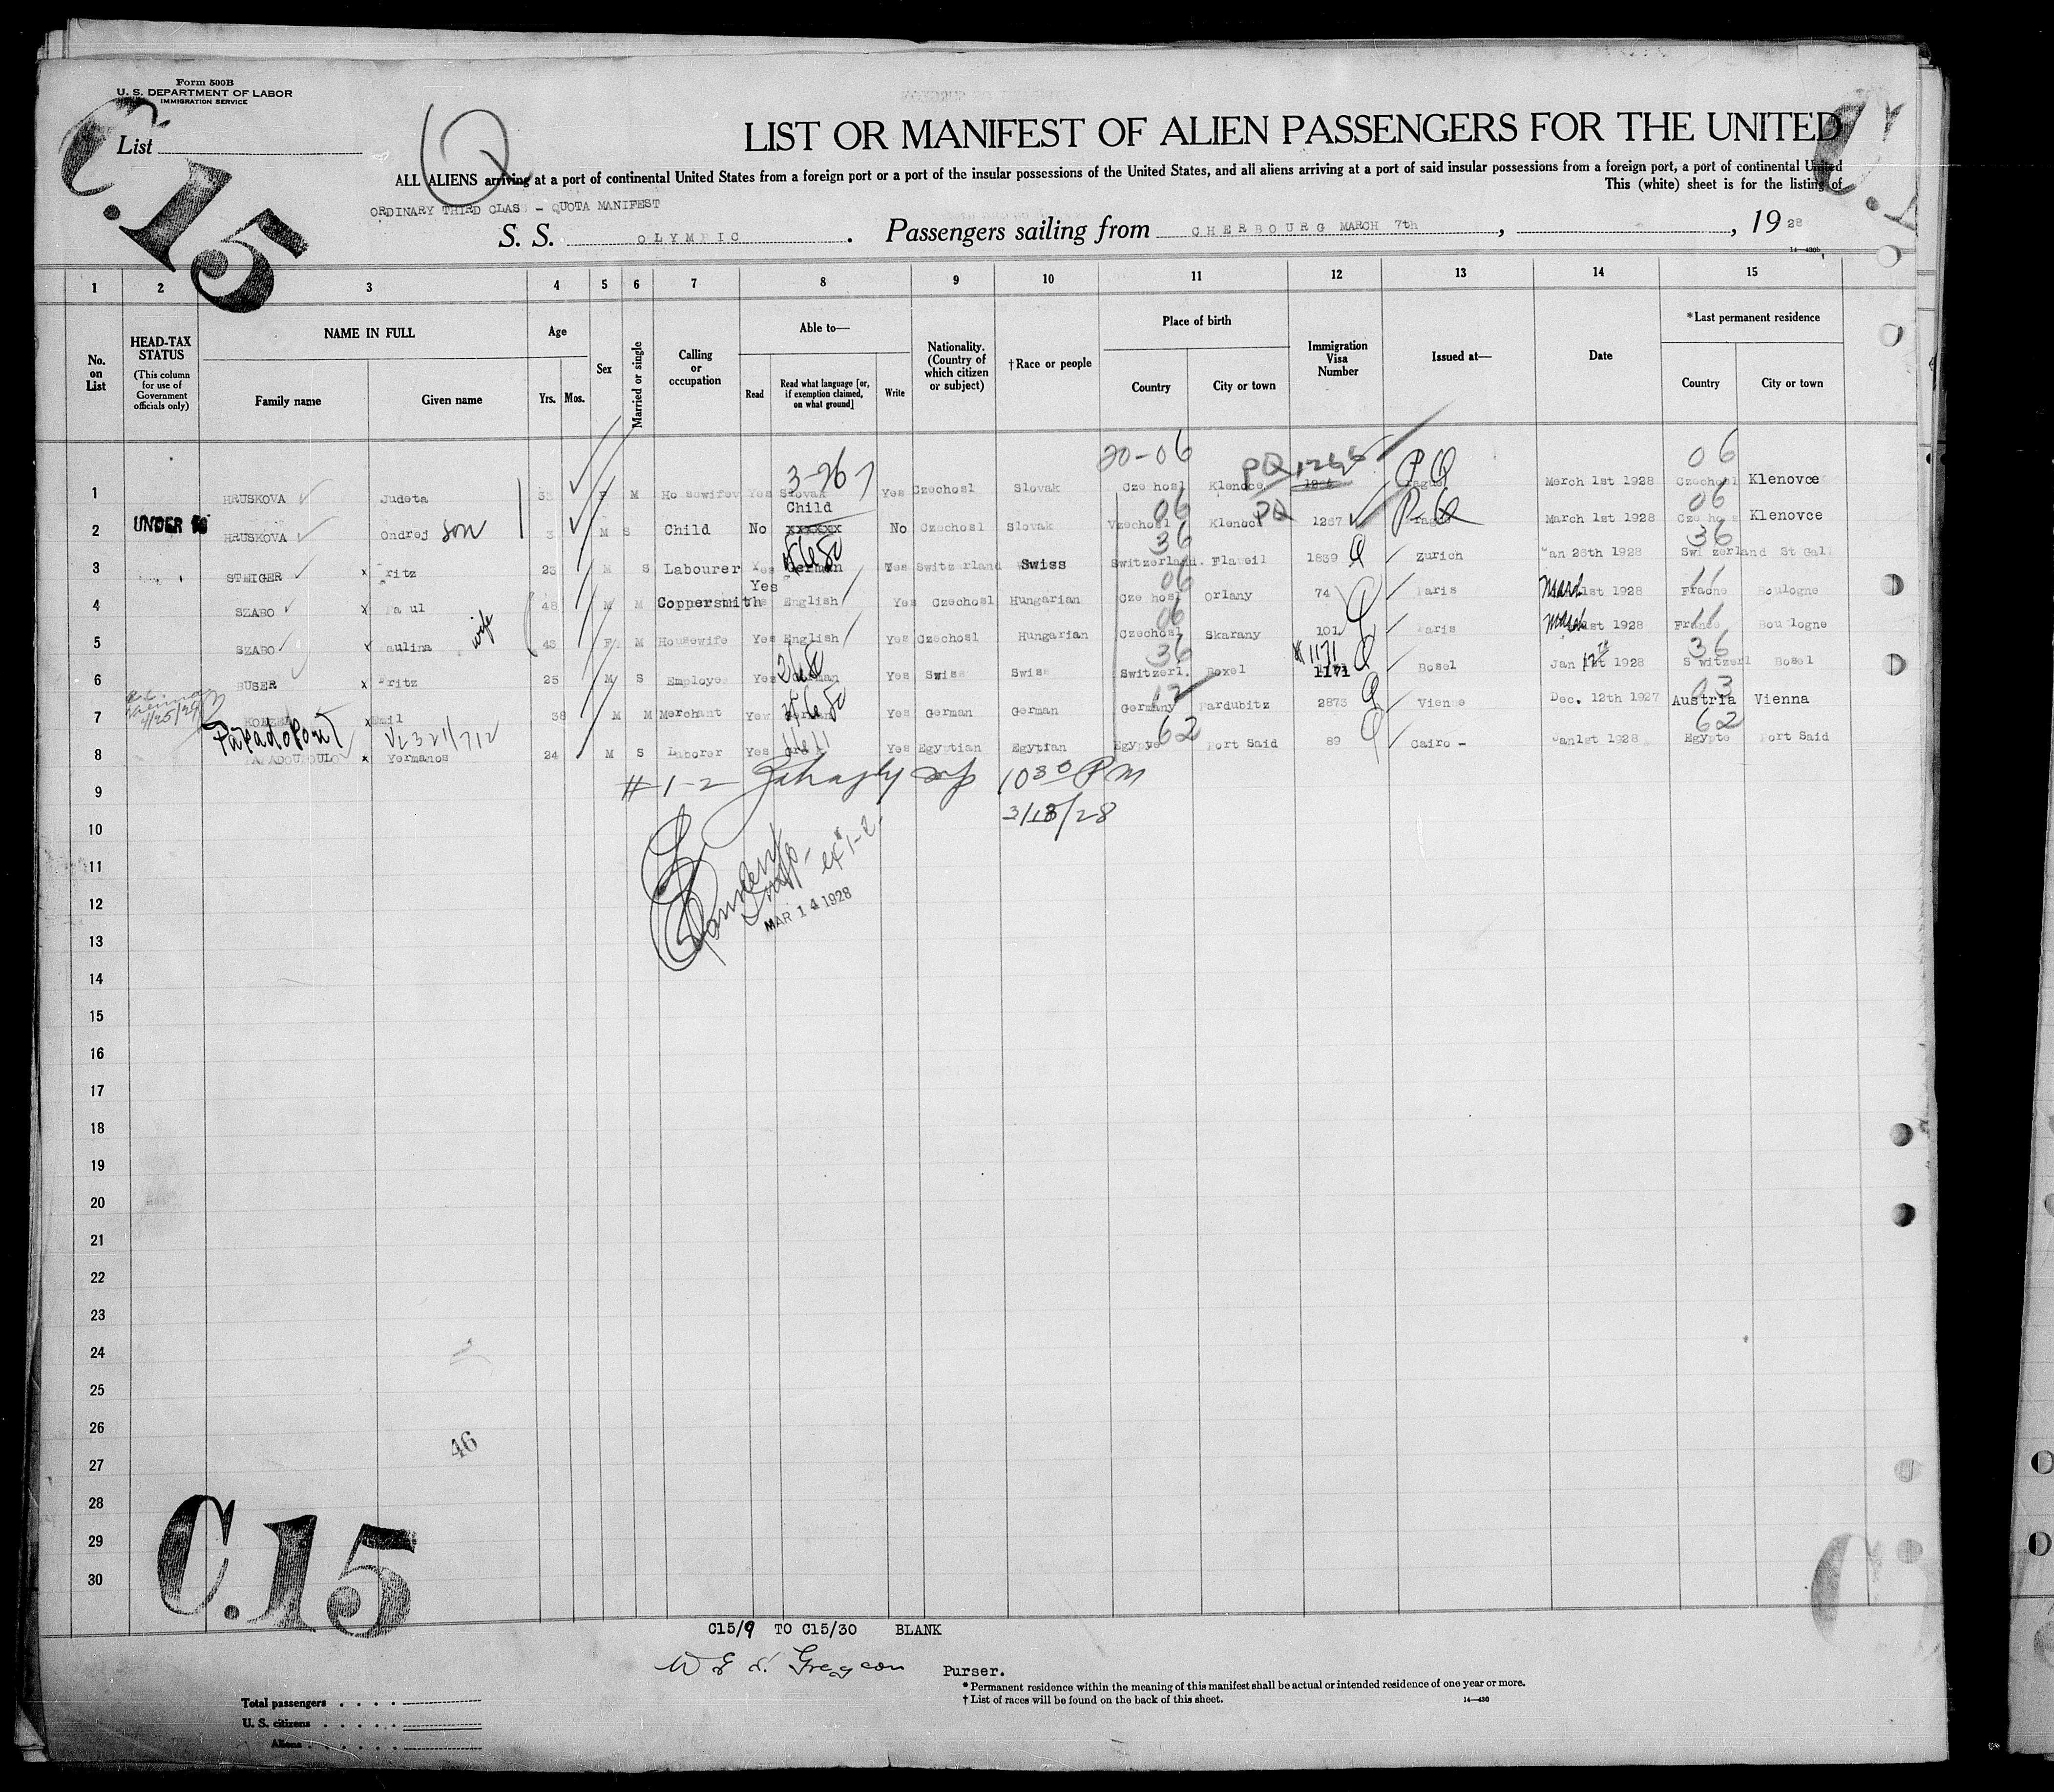 Form 500B
U. S. DEPARTMENT OF LABOR
IMMIGRATION SERVICE
List
C.15
Q
LIST OR MANIFEST OF ALIEN PASSENGERS FOR THE UNITED
ALL ALIENS arriving at a port of continental United States from a foreign port or a port of the insular possessions of the United States, and all aliens arriving at a port of said insular possessions from a foreign port, a port of continental United
This (white) sheet is for the listing of
ORDINARY THIRD CLASS - QUOTA MANIFEST
S. S. OLYMPIC. Passengers sailing from CHERBOURG MARCH 7th, , 19 28
14—430b
1 2 3 4 5 6 7 8 9 10 11 12 13 14 15
No. on List
HEAD-TAX STATUS (This column for use of Government officials only)
NAME IN FULL
Family name Given name
Age
Yrs. Mos.
Sex
Married or single
Calling or occupation
Able to—
Read Read what language [or, if exemption claimed, on what ground] Write
Nationality. (Country of which citizen or subject)
†Race or people
Place of birth
Country City or town
Immigration Visa Number
Issued at—
Date
*Last permanent residence
Country City or town
20-06 06
3-26 PQ 1266 PQ
1 HRUSKOVA Judeta F M Yes Slovak Yes Czechosl Slovak Klenoce March 1st 1928 Czechosl Klenovce
Child 06 PQ 06
2 UNDER 16 HRUSKOVA Ondrej son 3 M S Child No xxxxxx No Czechosl Slovak 1267 March 1st 1928 Klenovce
36 36
3 STEIGER x Fritz 23 M S Labourer Yes German Yes Switzerland Swiss Switzerland. Flaweil 1839 Q Zurich Jan 26th 1928 Switzerland St Gal
Yes 06 11
4 SZABO x Paul 48 M M Coppersmith English Yes Czechosl Hungarian Orlany 74 Q Paris March 1st 1928 France Boulogne
06 11
5 SZABO x Paulina wife 43 F M Housewife Yes English Yes Czechosl Hungarian Czechosl Skarany 101 Q Paris March 1st 1928 France Boulogne
36 1171 36
6 BUSER x Fritz 25 M S Employe Yes German Yes Swiss Swiss Switzerl. Boxel 1171 Q Bosel Jan 12th 1928 Switzerl Bosel
4/25/29 12 03
7 x Emil 38 M M Merchant Yes German Yes German German Germany Pardubitz 2873 Q Vienne Dec. 12th 1927 Austria Vienna
62 62
8 PAPADOUPOULO x Yermanos 24 M S Laborer Yes Yes Egyptian Egytian Egypye Port Said 89 Q Cairo - Jan 1st 1928 Egypte Port Said
9 # 1-2 10 30 PM
10 3/13/28
11
12 MAR 14 1928
13
14
15
16
17
18
19
20
21
22
23
24
25
26
27 46
28
29
30
C.15
C15/9 TO C15/30 BLANK
Purser.
*Permanent residence within the meaning of this manifest shall be actual or intended residence of one year or more.
†List of races will be found on the back of this sheet. 14—430
Total passengers
U. S. citizens
Aliens